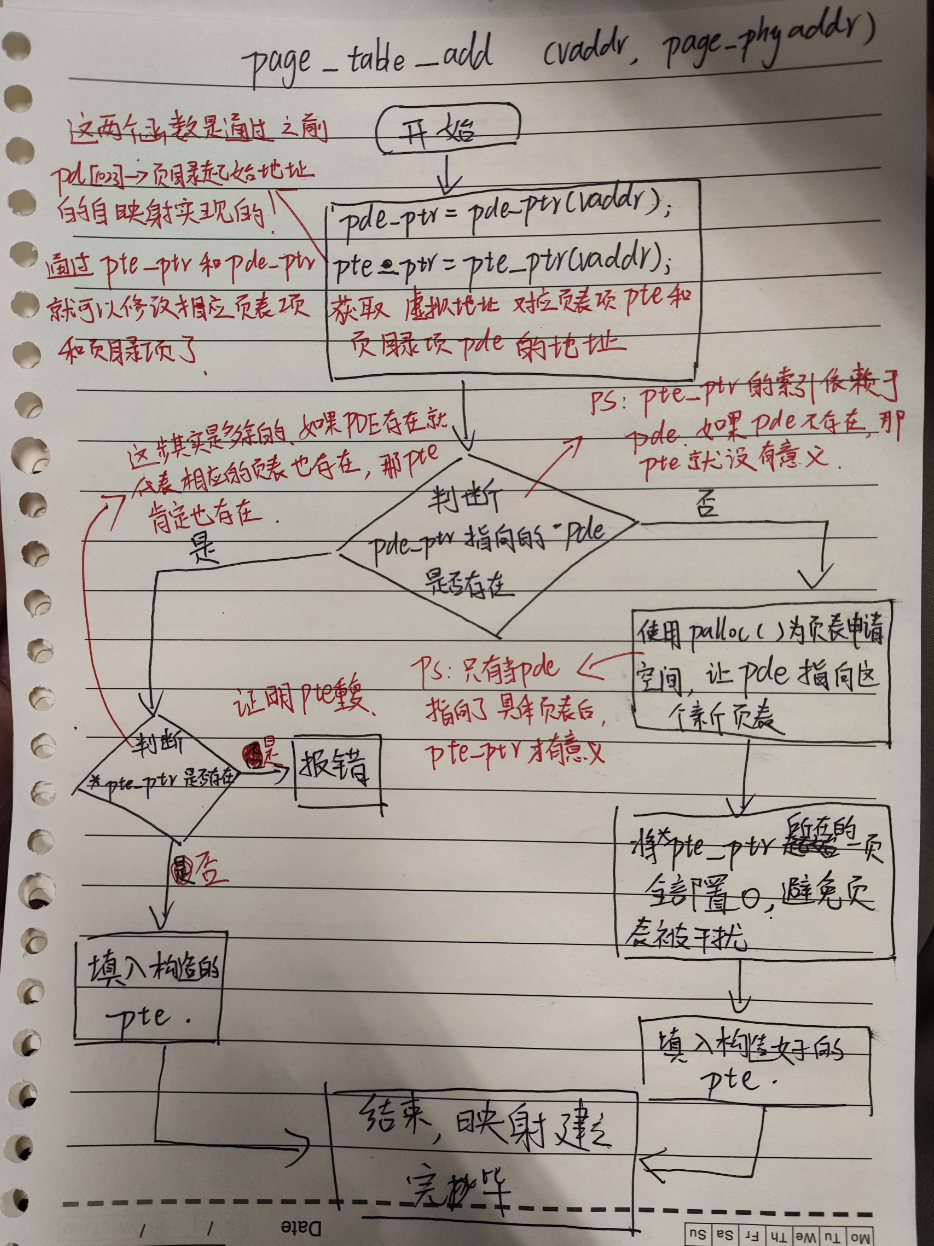 page_table_add (vaddr, page_phyaddr)
这两个函数是通过之前
pd[1023]→页目录起始地址
的自映射实现的！
通过pte_ptr和pde_ptr
就可以修改相应页表项
和页目录项了.
开始
pde_ptr = pde_ptr(vaddr);
pte_ptr = pte_ptr(vaddr);
获取 虚拟地址 对应页表项pte和
页目录项pde的地址
PS: pte_ptr的索引依赖于
pde. 如果pde不存在, 那
pte就没有意义.
这步其实是多余的、如果PDE存在就
代表相应的页表也存在, 那pte
肯定也存在.
判断
pde_ptr指向的pde
是否存在
是
否
使用palloc()为页表申请
空间, 让pde指向这
个新页表
PS: 只有当pde
指向了具体页表后,
pte_ptr才有意义
证明pte重复.
判断
*pte_ptr是否存在
是
报错
否
将*pte_ptr所在的一页
全部置0, 避免页
表被干扰
填入构造的
pte.
填入构造好的
pte.
结束, 映射建立
完毕
Date / /
Mo Tu We Th Fr Sa Su